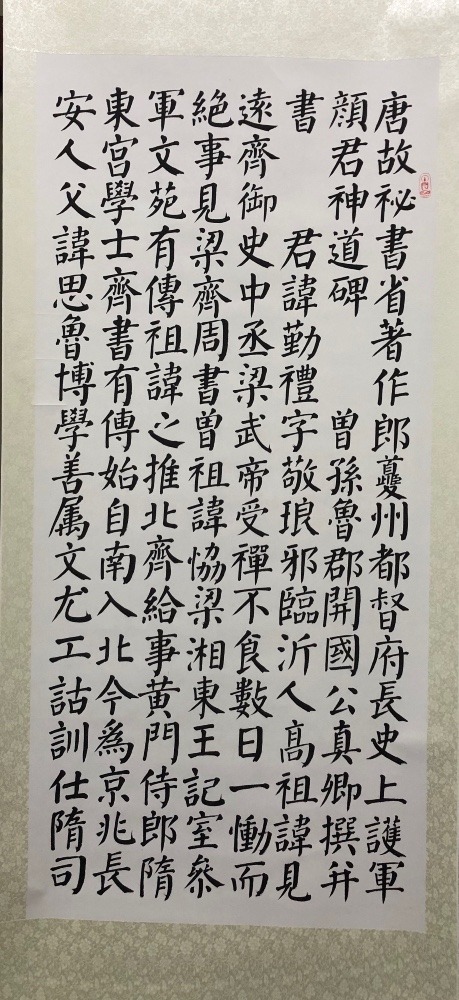 唐故祕書省著作郎夔州都督府長史上護軍
顔君神道碑 曾孫魯郡開國公真卿撰并
書 君諱勤禮字敬琅邪臨沂人高祖諱見
逺齊御史中丞梁武帝受禪不食數日一慟而
絶事見梁齊周書曾祖諱恊梁湘東王記室叅
軍文苑有傳祖諱之推北齊給事黄門侍郎隋
東宮學士齊書有傳始自南入北今爲京兆長
安人父諱思魯博學善属文尤工詁訓仕隋司